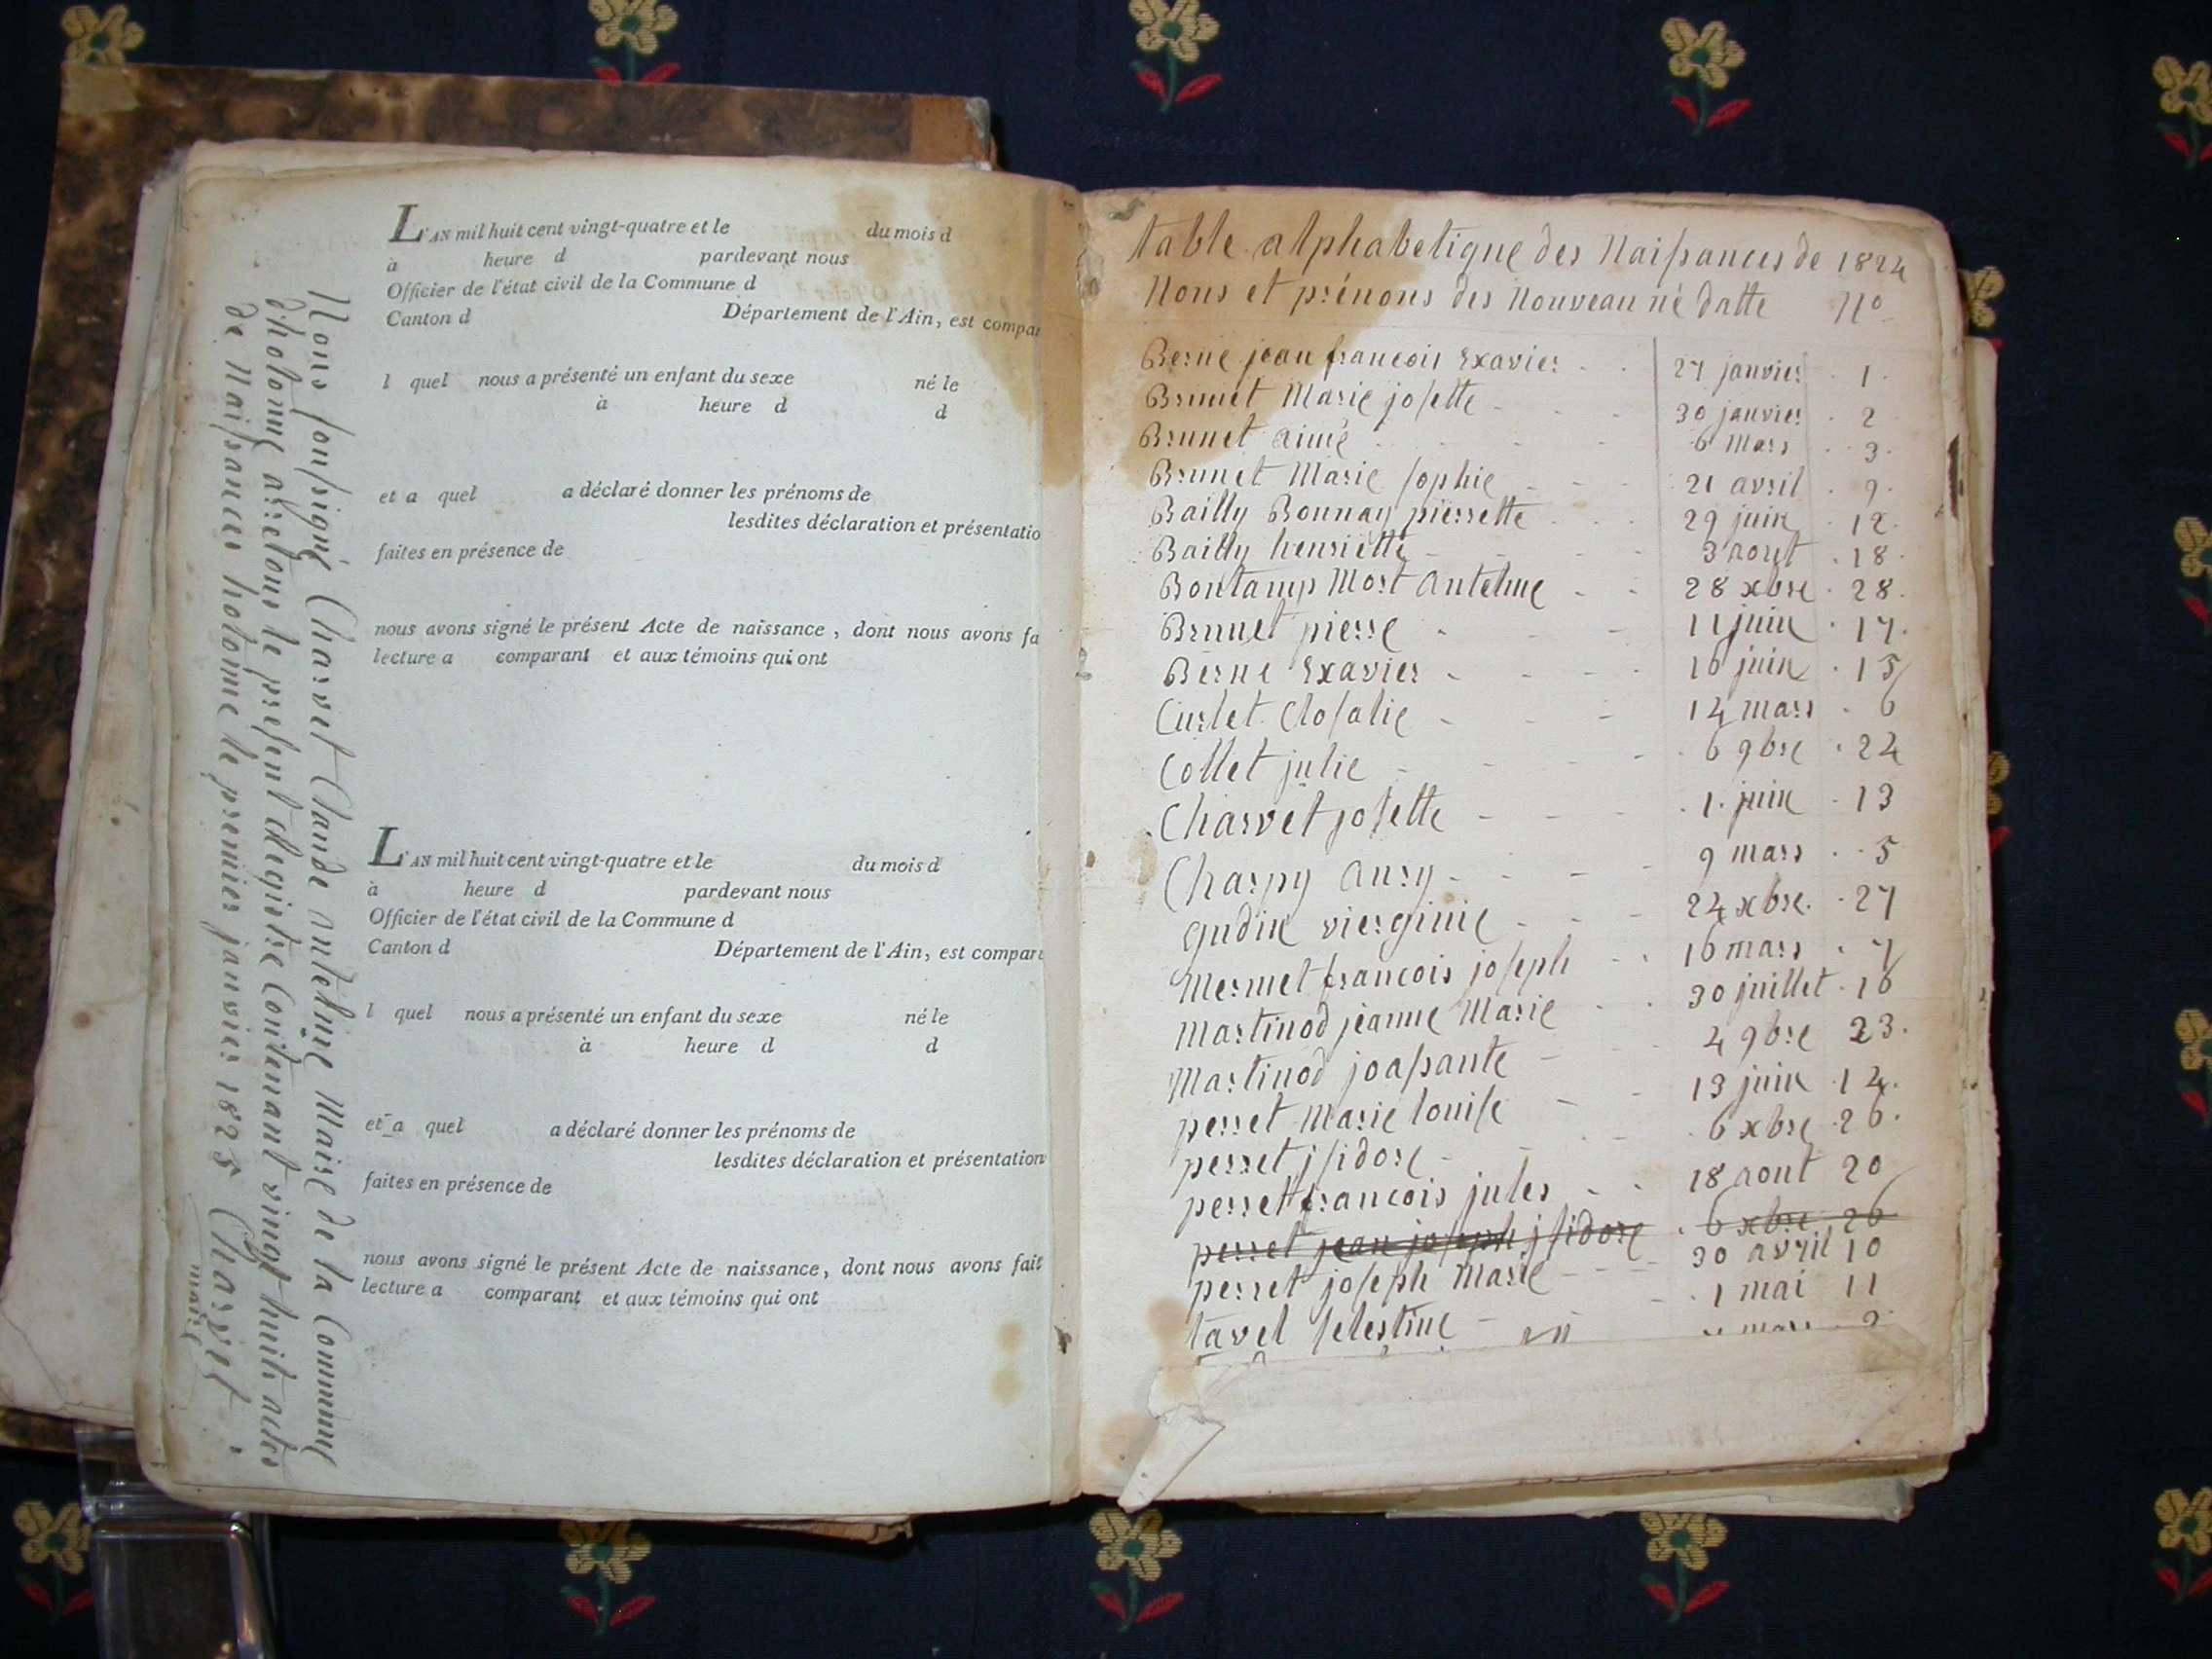 L'AN mil huit cent vingt-quatre et le du mois d
à heure d pardevant nous
Officier de l'état civil de la Commune d
Canton d Département de l'Ain, est compar
l quel nous a présenté un enfant du sexe né le
à heure d d
et a quel a déclaré donner les prénoms de
lesdites déclaration et présentatio
faites en présence de
nous avons signé le présent Acte de naissance, dont nous avons fa
lecture a comparant et aux témoins qui ont
L'AN mil huit cent vingt-quatre et le du mois d
à heure d pardevant nous
Officier de l'état civil de la Commune d
Canton d Département de l'Ain, est compar
l quel nous a présenté un enfant du sexe né le
à heure d d
et a quel a déclaré donner les prénoms de
lesdites déclaration et présentation
faites en présence de
nous avons signé le présent Acte de naissance, dont nous avons fait
lecture a comparant et aux témoins qui ont
Nous soussigné Charvet Claude antelme Maire de la Commune
d'hotonne arretons le present Registre Contenant vingt huit actes
de Naissances hotonne le premier janvier 1825 Charvet
maire
table alphabetique des Naissances de 1824
Nons et prénons des Nouveau né datte No
Berne jean francois Exavier 27 janvier 1
Brunet Marie josette 30 janvier 2
Brunet aimé 6 Mars 3
Brunet Marie sophie 21 avril 9
Bailly Bonnay pierrette 29 juin 12
Bailly henriette 3 aout 18
Bontamp Mort Antelme 28 xbre 28
Brunet pierre 11 juin 17
Berne Exavier 16 juin 15
Curlet Closalie 14 mars 6
Collet julie 6 9bre 24
Charvet josette 1 juin 13
Charpy Aury 9 mars 5
gudin vierginie 24 xbre 27
Mermet francois joseph 16 mars 7
Martinod jeanne Marie 30 juillet 16
Martinod joassante 4 9bre 23
perret Marie louise 13 juin 14
perret jsidore 6 xbre 26
perret francois jules 18 aout 20
perret jean joseph jsidore 6 xbre 26
perret joseph Marie 30 avril 10
tavel selestine 1 mai 11
mars